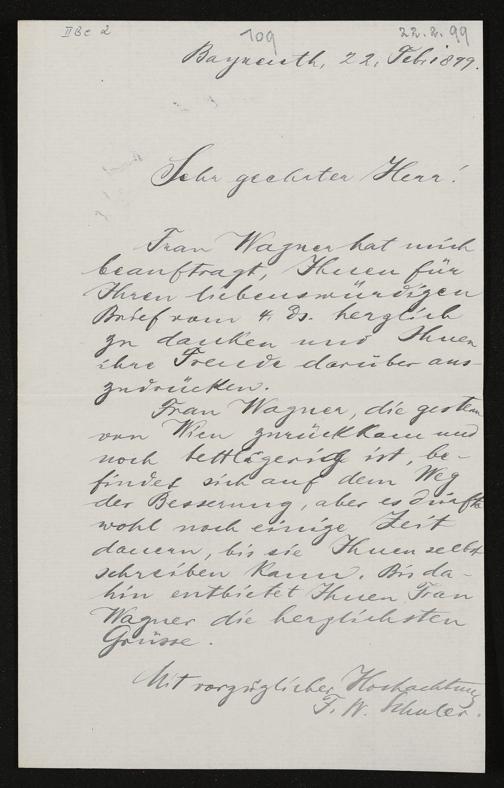 II Bc 2 109 22.2.99
Bayreuth, 22. Feb. 1899.
Sehr geehrter Herr!
Frau Wagner hat mich
beauftragt, Ihnen für
Ihren liebenswürdigen
Brief vom 4. ds. herzlich
zu danken und Ihnen
ihre Freude darüber aus-
zudrücken.
Frau Wagner, die gestern
von Wien zurückkam und
noch bettlägerig ist, be-
findet sich auf dem Weg
der Besserung, aber es dürfte
wohl noch einige Zeit
dauern, bis sie Ihnen selbst
schreiben kann. Bis da-
hin entbietet Ihnen Frau
Wagner die herzlichsten
Grüsse.
Mit vorzüglicher Hochachtung
F. W. Schuler.